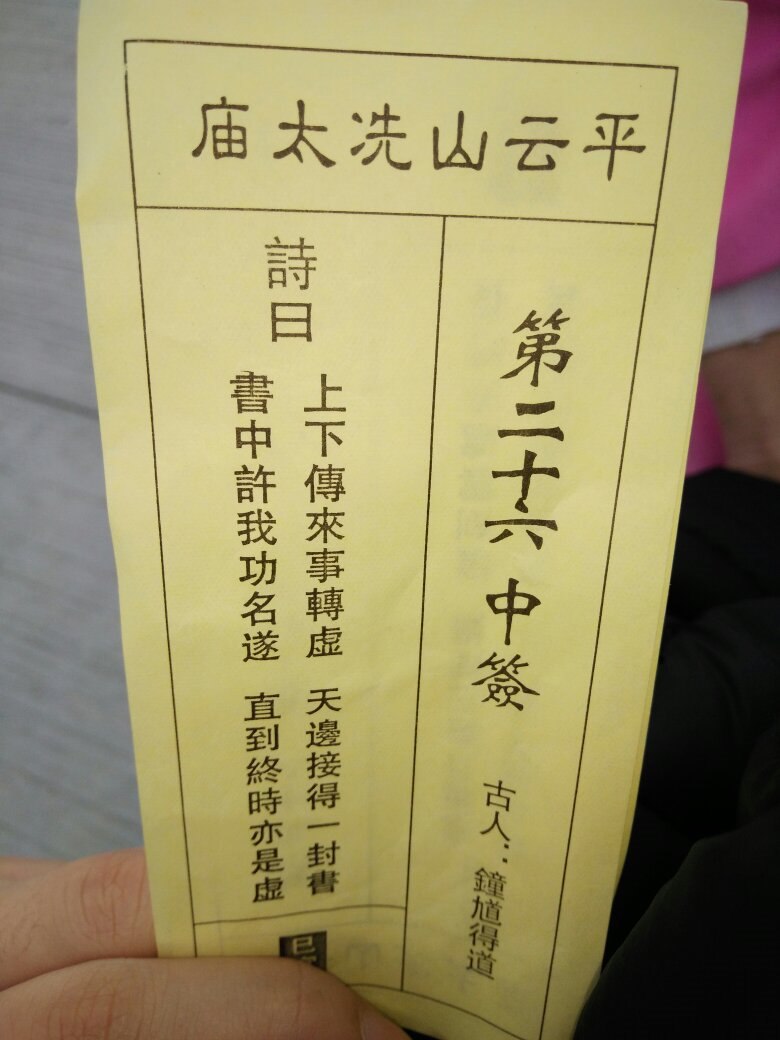 平云山冼太庙
第二十六 中簽 古人：鐘馗得道
詩曰
上下傳來事轉虛 天邊接得一封書
書中許我功名遂 直到終時亦是虛